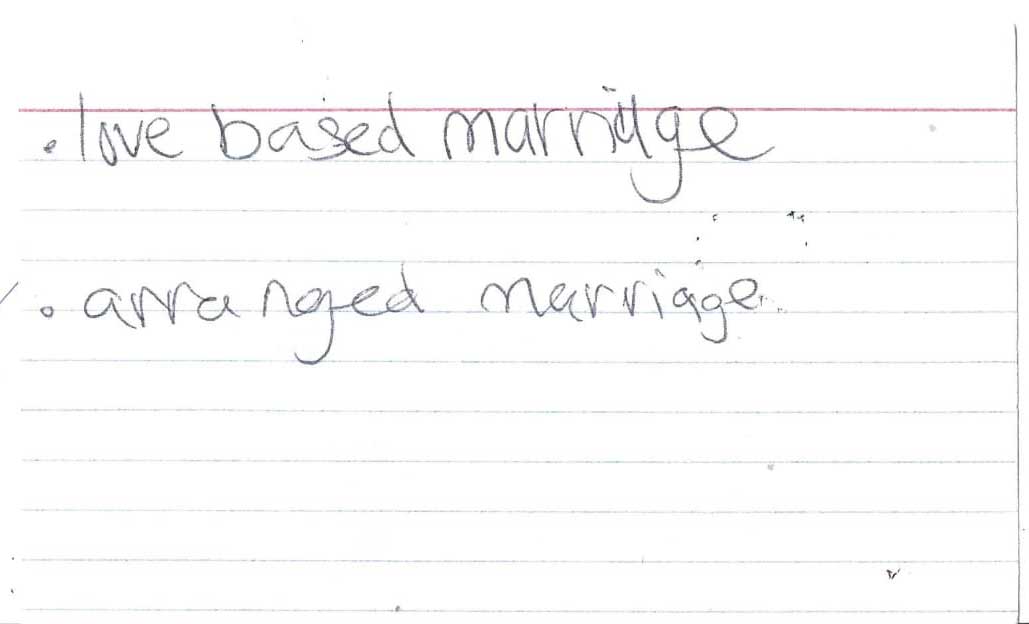 . love based marriage
. arranged marriage